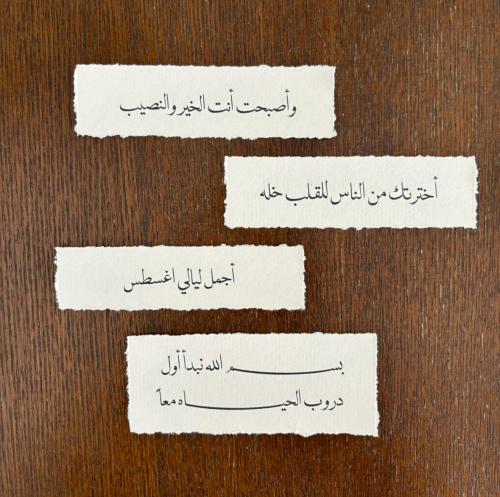 وأصبحت أنت الخير والنصيب
أخترتك من الناس للقلب خله
أجمل ليالي اغسطس
بســـــــم الله نبدأ أول
دروب الحيـــــــاه معاً